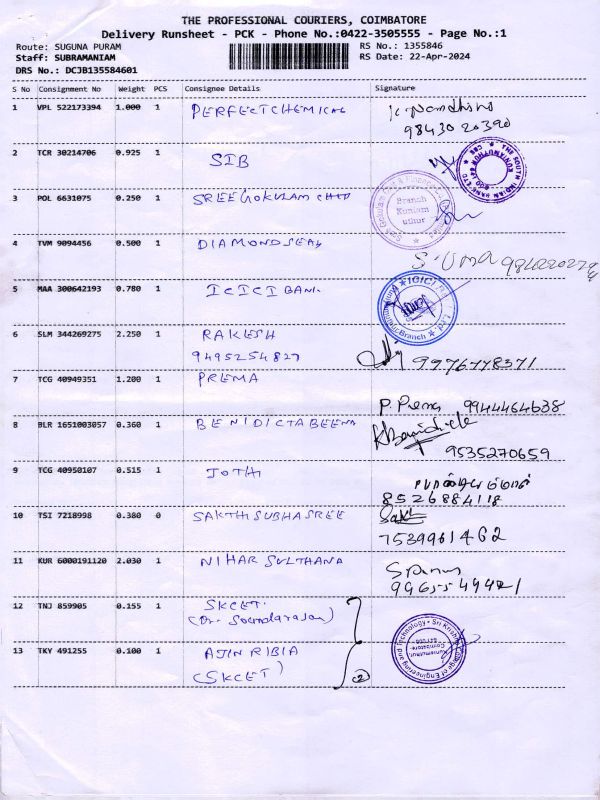 THE PROFESSIONAL COURIERS, COIMBATORE
Delivery Runsheet - PCK - Phone No.:0422-3505555 - Page No.:1
Route: SUGUNA PURAM
RS No.: 1355846
Staff: SUBRAMANIAM
RS Date: 22-Apr-2024
DRS No.: DCJB135584601
S No Consignment No Weight PCS Consignee Details Signature
1 VPL 522173394 1.000 1 PERFECTCHEMICAL
98430 20390
2 TCR 30214706 0.925 1 SIB
3 POL 6631075 0.250 1 SREEGOKULAM CHIT
Branch
Kuniam
uthur
4 TVM 9094456 0.500 1 DIAMONDSEAL
S. Uma
5 MAA 300642193 0.780 1 ICICI BANK
6 SLM 344269275 2.250 1 RAKESH
9495254827
9976778371
7 TCG 40949351 1.200 1 PREMA
P. Prema 9944464638
8 BLR 1651003057 0.360 1 BENIDICTABEENA
9535270659
9 TCG 40950107 0.515 1 JOTHI
8526884118
10 TSI 7218998 0.380 0 SAKTHISUBHASREE
7539961462
11 KUR 6000191120 2.030 1 NIHAR SULTHANA
12 TNJ 859905 0.155 1 SKCET.
(Dr. Soundarajan)
13 TKY 491255 0.100 1 AJIN RIBIA
(SKCET)
2